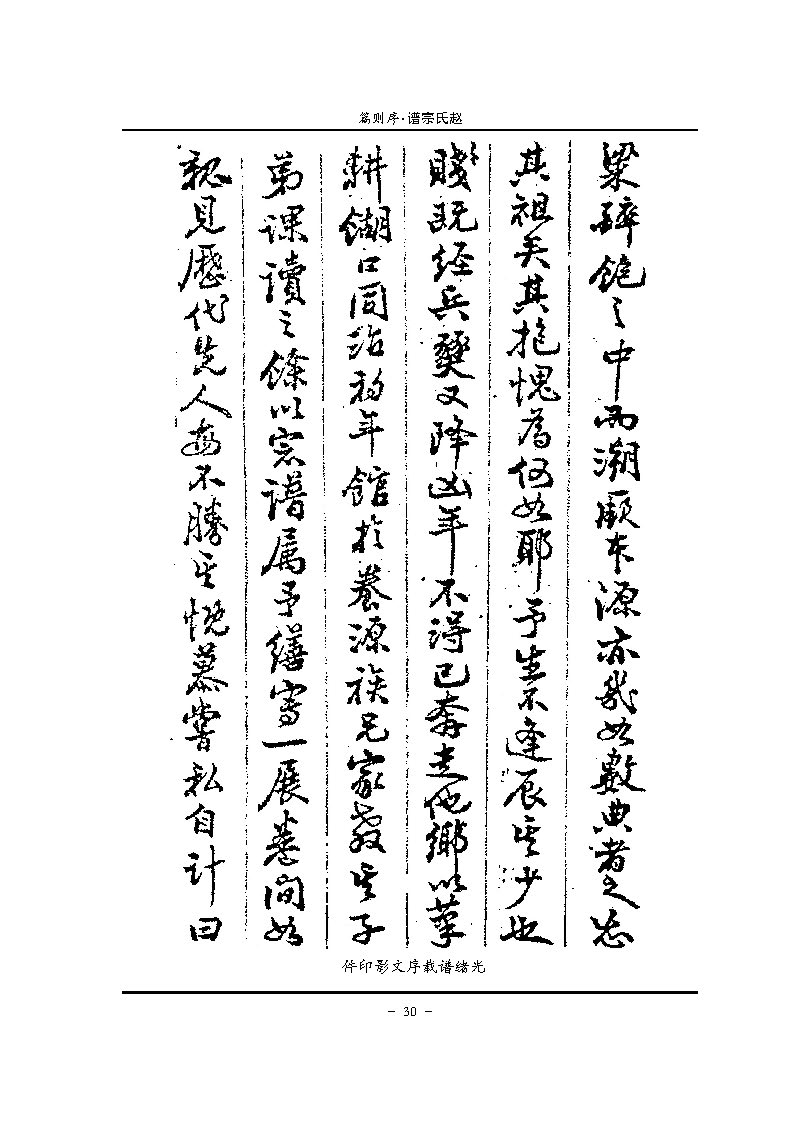 赵氏宗谱·序则篇
梁醉飽之中而溯厥本源亦幾如數典者之忘
其祖矣其抱愧為何如耶予生不逢辰其少也
賤既經兵燹又降凶年不得已奔走他鄉以筆
耕餬口同治初年館於養源族兄家教其子
弟課讀之餘以宗譜属予繕寫一展卷间如
親見歷代先人每不勝其慨慕嘗私自计曰
光绪谱载序文影印件
- 30 -